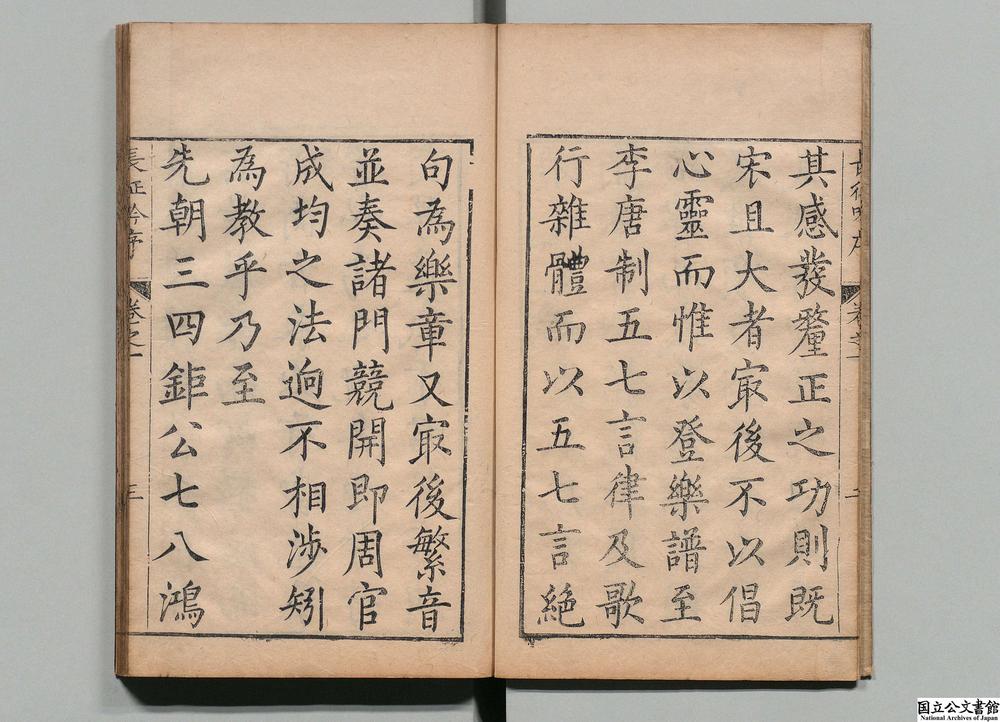 其感發釐正之功則既
宋且大者㝡後不以倡
心靈而惟以登樂譜至
李唐制五七言律及歌
行雜體而以五七言絶
句為樂章又㝡後繁音
並奏諸門競開即周官
成均之法逈不相涉矧
為教乎乃至
先朝三四鉅公七八鴻
長征吟序
卷之一
三
国立公文書館
National Archives of Japan